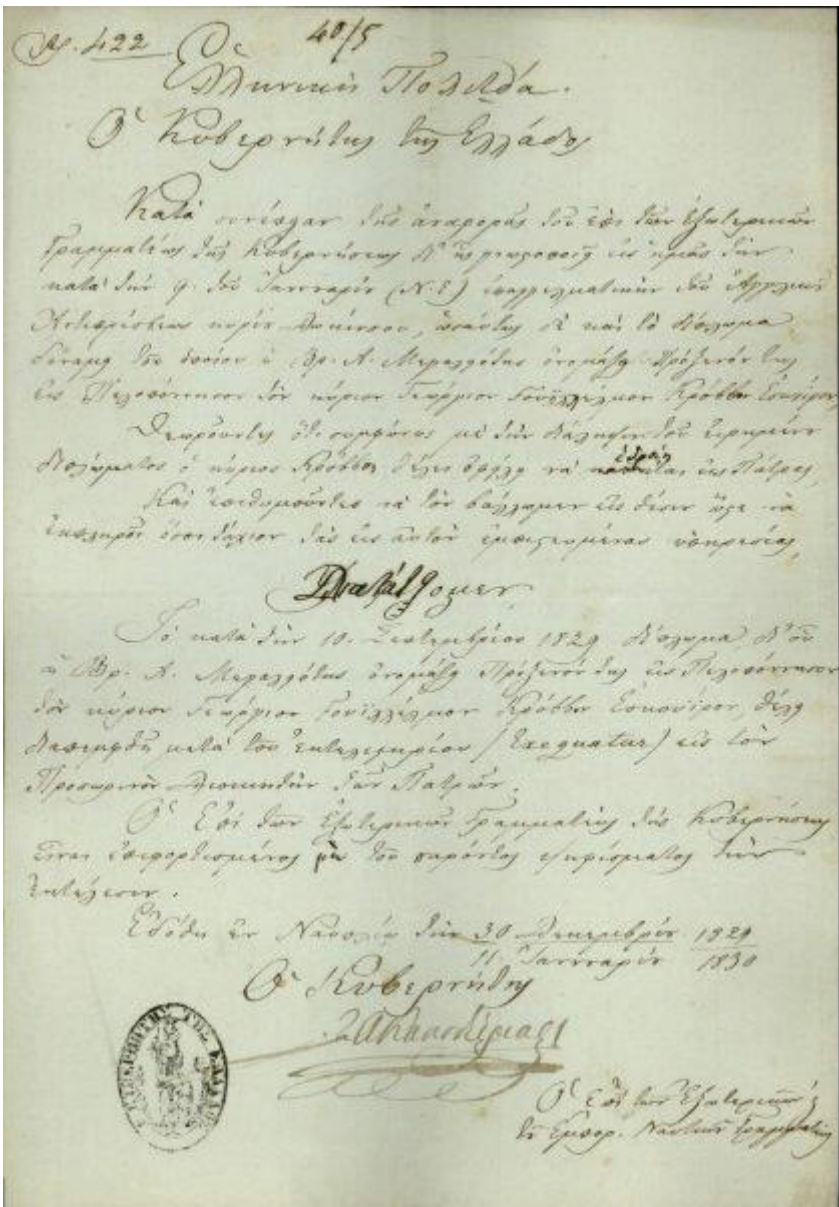 Ἀρ. 422
40/5
Ἑλληνικὴ Πολιτεία.
Ὁ Κυβερνήτης τῆς Ἑλλάδος
Κατὰ συνέπειαν τῆς ἀναφορᾶς τοῦ ἐπὶ τῶν Ἐξωτερικῶν
Γραμματέως τῆς Κυβερνήσεως δι' ἧς εἰς ἡμᾶς τὴν
κατὰ τὴν 9. τοῦ Ἰαννουαρίου (Ν.Ε) τοῦ Ἀγγλικοῦ
κυρίου Δώκινσου, ὡσαύτως δὲ καὶ τὸ δίπλωμα
δυνάμει τοῦ ὁποίου ἡ Βρ. Α. Μεγαλειότης ὀνομάζει Πρόξενόν της
εἰς Πελοπόννησον τὸν κύριον Γεώργιον Γουϊλλέλμον Κρόββε Ἐσκουΐρον
Θεωροῦντες ὅτι συμφώνως μὲ τὴν διάληψιν τοῦ εἰρημένου
διπλώματος ὁ κύριος Κρόββε θέλει ἑδρεύει εἰς Πάτρας,
Καὶ ἐπιθυμοῦντες νὰ τὸν βάλλωμεν εἰς θέσιν ὥστε νὰ
ἐκπληροῖ ὅσον τάχιον τὰς εἰς αὐτὸν ἐμπιστευμένας ὑπηρεσίας,
Διατάττομεν
Τὸ κατὰ τὴν 10. Σεπτεμβρίου 1829 δίπλωμα δι' οὗ
ἡ Βρ. Α. Μεγαλειότης ὀνομάζει Πρόξενόν της εἰς Πελοπόννησον
τὸν κύριον Γεώργιον Γουϊλλέλμον Κρόββε Ἐσκουΐρον, θέλει
διαπεμφθῆ μετὰ τοῦ ἐκτελεστηρίου (Exequatur) εἰς τὸν
Προσωρινὸν Διοικητὴν τῶν Πατρῶν.
Ὁ ἐπὶ τῶν Ἐξωτερικῶν Γραμματεὺς τῆς Κυβερνήσεως
εἶναι ἐπιφορτισμένος μὲ τοῦ παρόντος ψηφίσματος τὴν
ἐκτέλεσιν.
Ἐδόθη ἐν Ναυπλίῳ τὴν 30 Δεκεμβρίου 1829
11 Ἰαννουαρίου 1830
Ὁ Κυβερνήτης
Ι Α Καποδίστριας
Ο ΚΥΒΕΡΝΗΤΗΣ ΤΗΣ ΕΛΛΑΔΟΣ
Ὁ ἐπὶ τῶν Ἐξωτερικῶν &
τῆς Ἐμπορ. Ναυτικῆς Γραμματεὺς